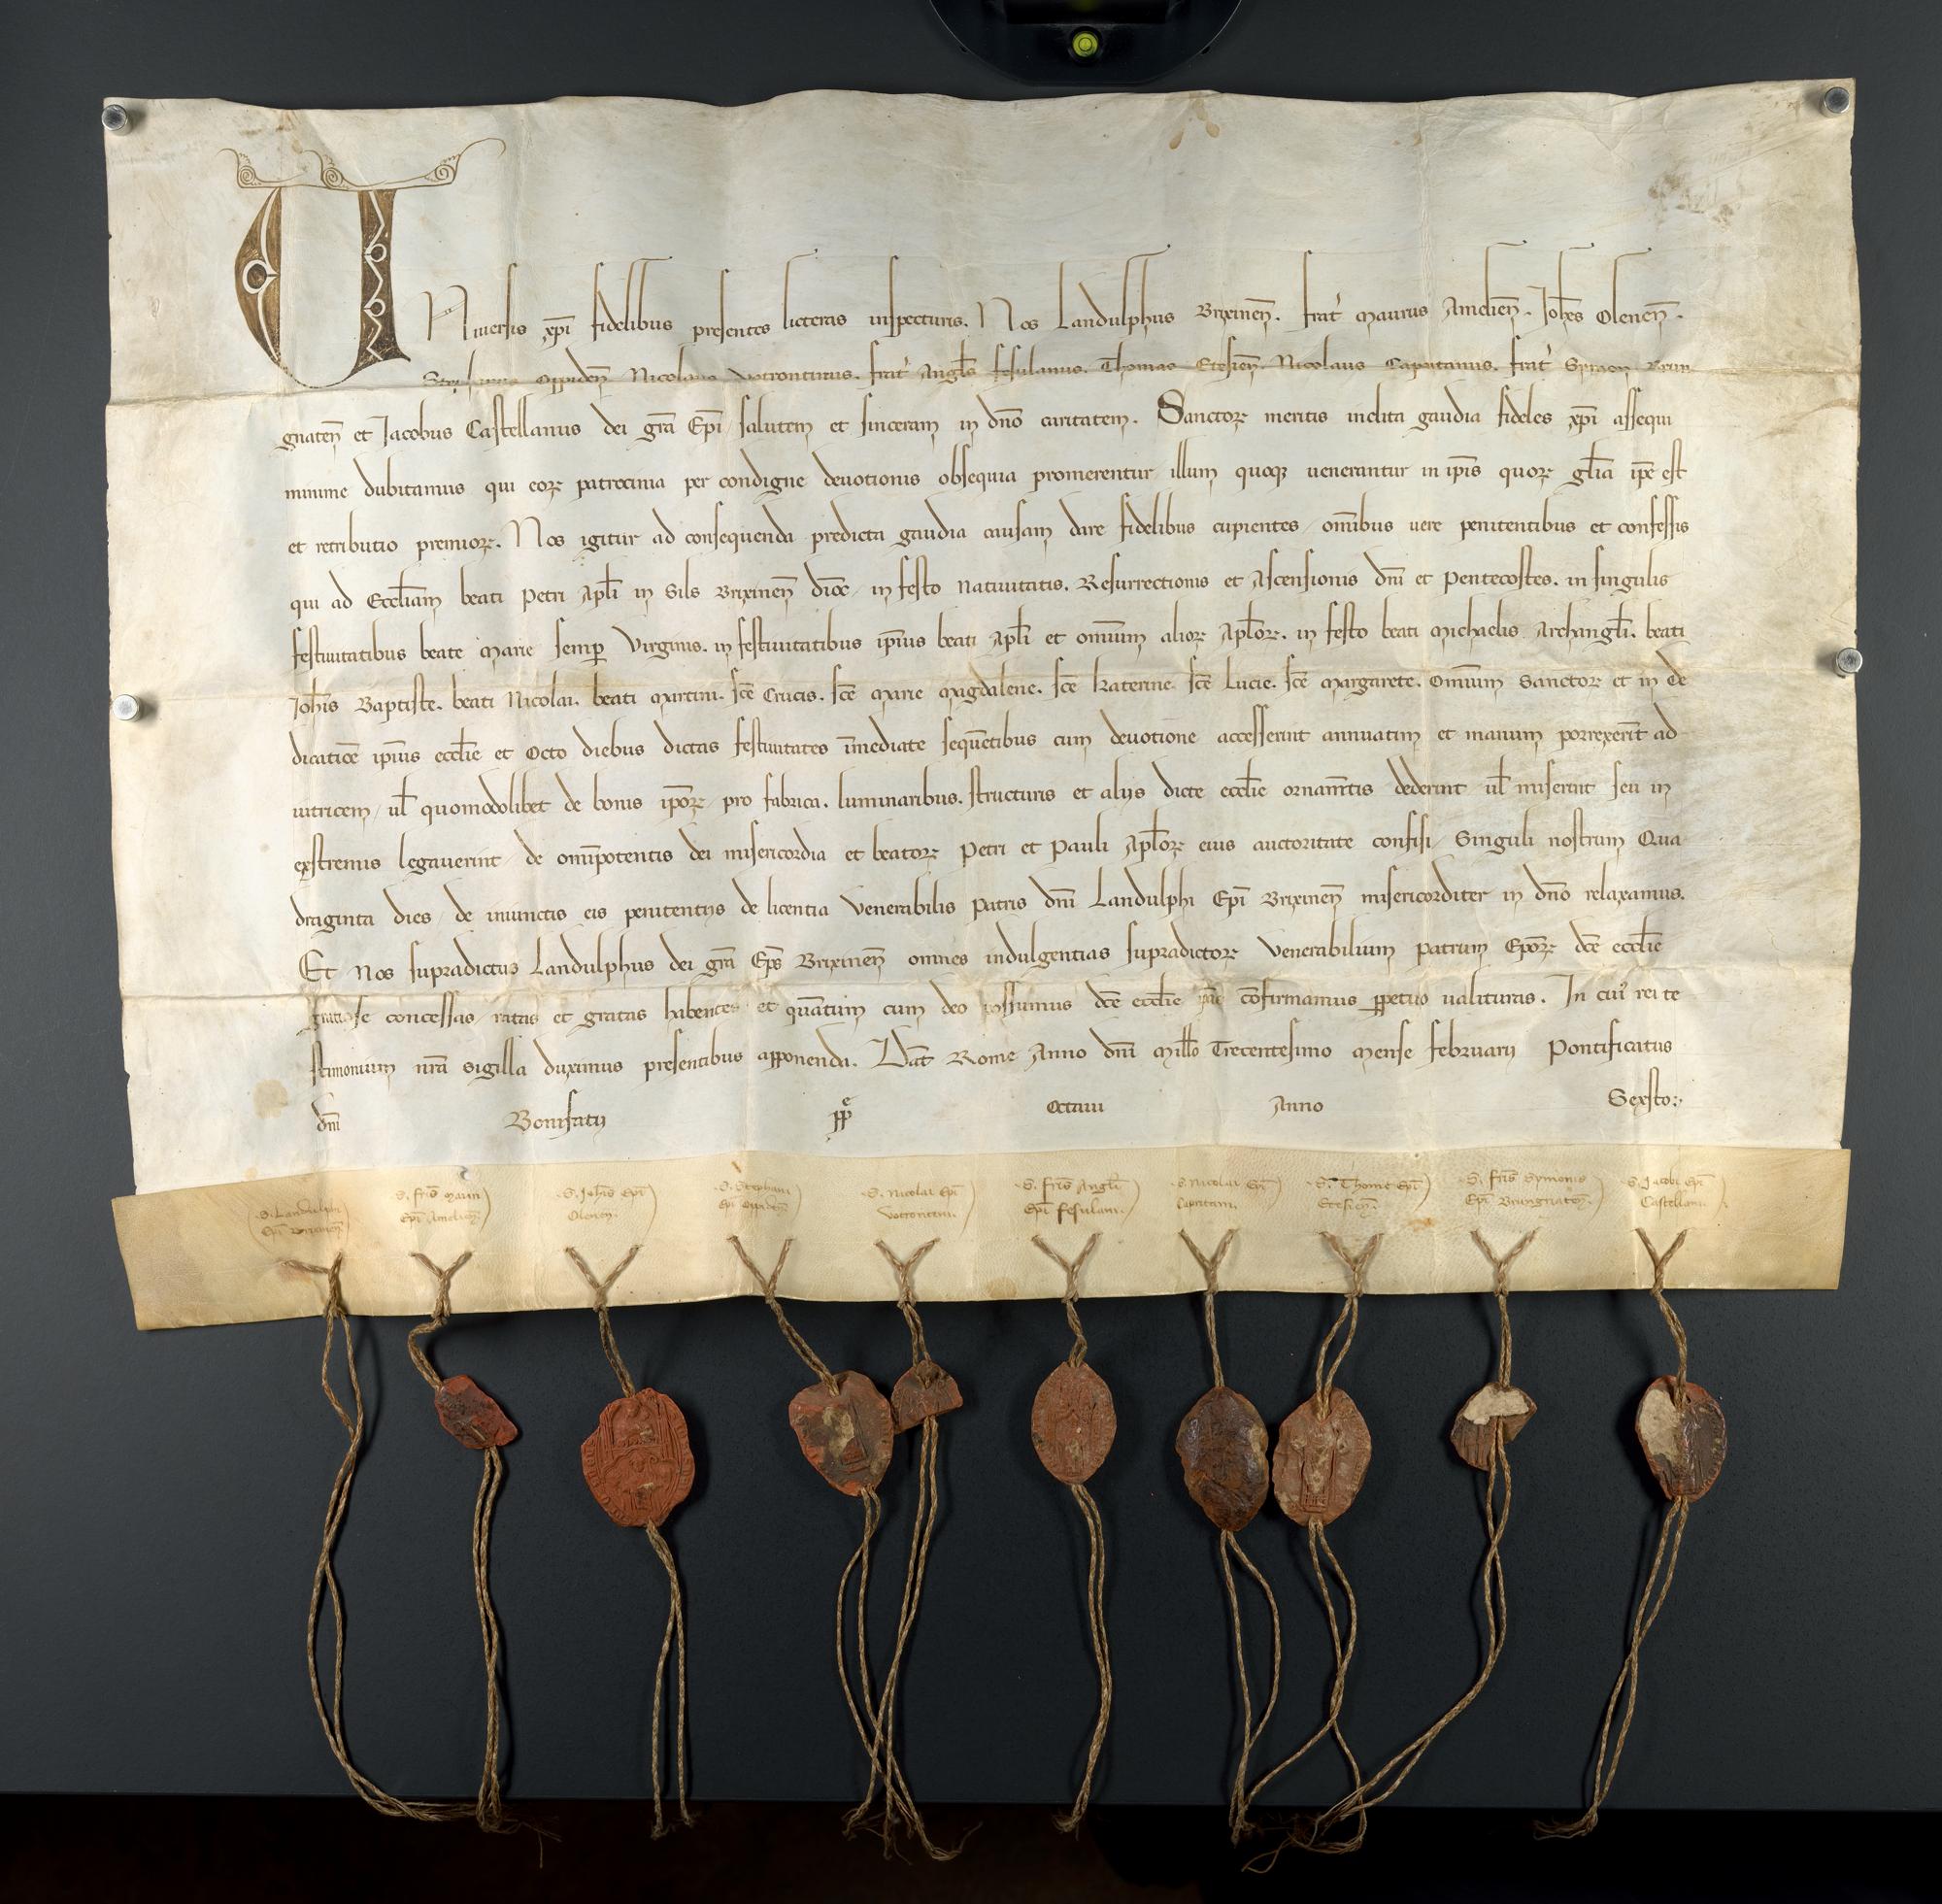 UNiuersis xp̄i fidelibus presentes litteras inspecturis. Nos Landulphus Brixinen̄. frat̓ Maurus Amelien̄. Joh̄es Olenen̄.
Stephanus Oppiden̄ Nicolaus Votrontinus. frat̓ Angl̄s fesulanus. Thomas Etesien̄. Nicolaus Capritanus. frat̓ Brun
gnaten̄ et Jacobus Castellanus dei gr̄a Ep̄i salutem et sinceram in dn̄o caritatem. Sanctoꝝ meritis inclita gaudia fideles xp̄i assequi
minime dubitamus qui eoꝝ patrocinia per condigne deuotionis obsequia promerentur illum quoqꝫ uenerantur in ip̄is quoꝝ gl̄ia ip̄e est
et retributio premioꝝ. Nos igitur ad consequenda predicta gaudia causam dare fidelibus cupientes / om̄ibus uere penitentibus et confessis
qui ad Eccl̄iam beati Petri Apl̄i in Sils Brixinen̄ dioc̄ in festo Natiuitatis. Resurrectionis et Ascensionis dn̄i et Pentecostes. in singulis
festiuitatibus beate Marie semꝑ Virginis. in festiuitatibus ip̄ius beati Apl̄i et omniū alioꝝ Apl̄oꝝ. in festo beati Michaelis Archangl̄i. beati
Joh̄is Baptiste. beati Nicolai. beati Martini. sc̄e Crucis. sc̄e Marie Magdalene. sc̄e Katerine sc̄e Lucie. sc̄e Margarete. Omniū Sanctoꝝ et in De
dicatiōe ip̄ius eccl̄ie et Octo diebus dictas festiuitates īmediate sequētibus cum deuotione accesserint annuatim et manum porrexerīt ad
iutricem / ul̄ quomodolibet de bonis ip̄oꝝ pro fabrica. luminaribus. structuris et alijs dicte eccl̄ie ornam̄tis dederint ul̄ miserint seu in
exstremis legauerint de om̄ipotentis dei misericordia et beatoꝝ Petri et Pauli Apl̄oꝝ eius auctoritate confisi / Singuli nostrum Qua
draginta dies / de iniunctis eis penitentijs de licentia Venerabilis Patris dn̄i Landulphi Ep̄i Brixinen̄ misericorditer in dn̄o relaxamus.
Et nos supradictus Landulphus dei gr̄a Ep̄s Brixinen̄ omnes indulgentias supradictoꝝ Venerabilium Patrum Ep̄oꝝ dc̄e eccl̄ie
gratiose concessas / ratas et gratas habentes / et quātum cum deo possumus dc̄e eccl̄ie cōfirmamus ꝑpetuo ualituras. In cui̓ rei te
stimonium nr̄a sigilla duximus presentibus apponenda. Dat̄ Rome Anno dn̄i Mill̄o Trecentesimo mense februarij Pontificatus
dn̄i Bonifatij pp̄e Octaui Anno Sexsto:.
.S. Landulphi Ep̄i Brixinen̄
.S. fr̄is Mauri Ep̄i Amelien̄.
.S. Joh̄is Ep̄i Olenen̄.
.S. Stephani Ep̄i Oppiden̄
.S. Nicolai Ep̄i Votrontini.
.S. fr̄is Angl̄i Ep̄i fesulani.
.S. Nicolai Ep̄i Capritani.
.S. Thome Ep̄i Etesien̄.
.S. fr̄is Symonis Ep̄i Brungnaten̄.
.S. Jacobi Ep̄i Castellani.